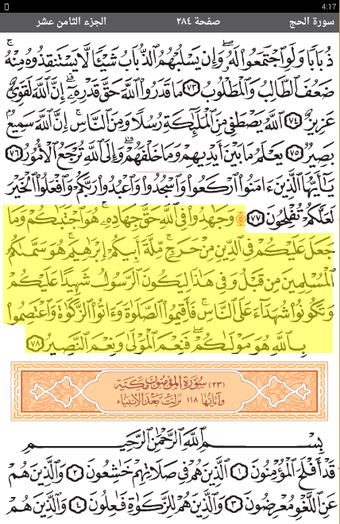 4:17
سورة الحج
صفحة ٢٨٤
الجزء الثامن عشر
ذُبَابًا وَلَوِ ٱجْتَمَعُوا۟ لَهُۥ وَإِن يَسْلُبْهُمُ ٱلذُّبَابُ شَيْـًٔا لَّا يَسْتَنقِذُوهُ مِنْهُ ۚ
ضَعُفَ ٱلطَّالِبُ وَٱلْمَطْلُوبُ ٧٣ مَا قَدَرُوا۟ ٱللَّهَ حَقَّ قَدْرِهِۦٓ ۗ إِنَّ ٱللَّهَ لَقَوِىٌّ
عَزِيزٌ ٧٤ ٱللَّهُ يَصْطَفِى مِنَ ٱلْمَلَـٰٓئِكَةِ رُسُلًا وَمِنَ ٱلنَّاسِ ۚ إِنَّ ٱللَّهَ سَمِيعٌۢ
بَصِيرٌ ٧٥ يَعْلَمُ مَا بَيْنَ أَيْدِيهِمْ وَمَا خَلْفَهُمْ ۗ وَإِلَى ٱللَّهِ تُرْجَعُ ٱلْأُمُورُ ٧٦
يَـٰٓأَيُّهَا ٱلَّذِينَ ءَامَنُوا۟ ٱرْكَعُوا۟ وَٱسْجُدُوا۟ وَٱعْبُدُوا۟ رَبَّكُمْ وَٱفْعَلُوا۟ ٱلْخَيْرَ
لَعَلَّكُمْ تُفْلِحُونَ ۩ ٧٧ وَجَـٰهِدُوا۟ فِى ٱللَّهِ حَقَّ جِهَادِهِۦ ۚ هُوَ ٱجْتَبَىٰكُمْ وَمَا
جَعَلَ عَلَيْكُمْ فِى ٱلدِّينِ مِنْ حَرَجٍ ۚ مِّلَّةَ أَبِيكُمْ إِبْرَٰهِيمَ ۚ هُوَ سَمَّىٰكُمُ
ٱلْمُسْلِمِينَ مِن قَبْلُ وَفِى هَـٰذَا لِيَكُونَ ٱلرَّسُولُ شَهِيدًا عَلَيْكُمْ
وَتَكُونُوا۟ شُهَدَآءَ عَلَى ٱلنَّاسِ ۚ فَأَقِيمُوا۟ ٱلصَّلَوٰةَ وَءَاتُوا۟ ٱلزَّكَوٰةَ وَٱعْتَصِمُوا۟
بِٱللَّهِ هُوَ مَوْلَىٰكُمْ ۖ فَنِعْمَ ٱلْمَوْلَىٰ وَنِعْمَ ٱلنَّصِيرُ ٧٨
(٢٣) سُورَةُ المُؤْمِنُونَ مَكِّيَّة
وَآيَاتُهَا ١١٨ نَزَلَتْ بَعْدَ الأَنْبِيَاء
بِسْمِ ٱللَّهِ ٱلرَّحْمَـٰنِ ٱلرَّحِيمِ
قَدْ أَفْلَحَ ٱلْمُؤْمِنُونَ ١ ٱلَّذِينَ هُمْ فِى صَلَاتِهِمْ خَـٰشِعُونَ ٢ وَٱلَّذِينَ هُمْ
عَنِ ٱللَّغْوِ مُعْرِضُونَ ٣ وَٱلَّذِينَ هُمْ لِلزَّكَوٰةِ فَـٰعِلُونَ ٤ وَٱلَّذِينَ هُمْ